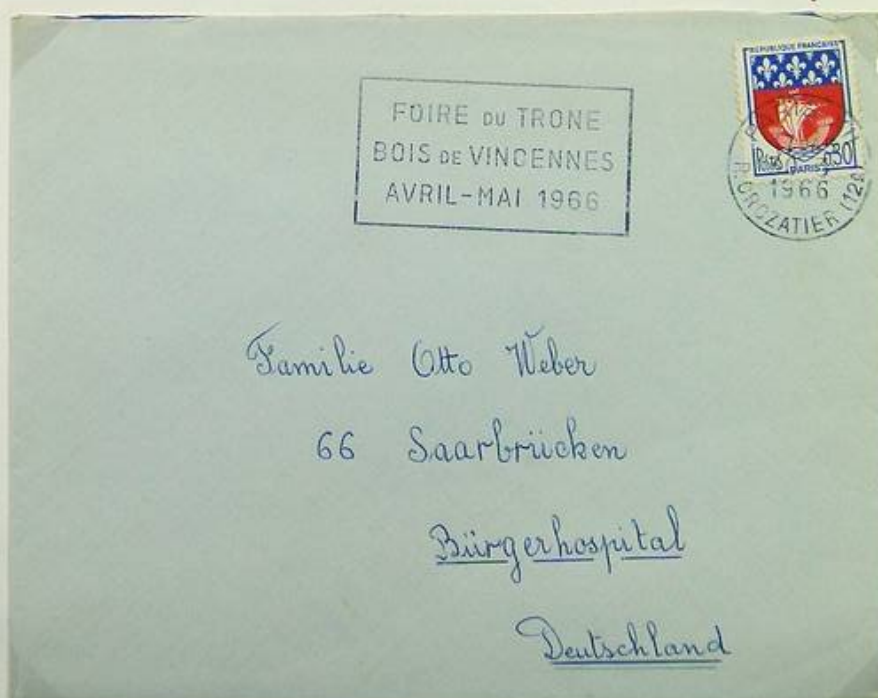 FOIRE DU TRONE
BOIS DE VINCENNES
AVRIL-MAI 1966
REPUBLIQUE FRANÇAISE
Postes 0,30
PARIS
1966
R. CROZATIER (12e)
Familie Otto Weber
66 Saarbrücken
Bürgerhospital
Deutschland